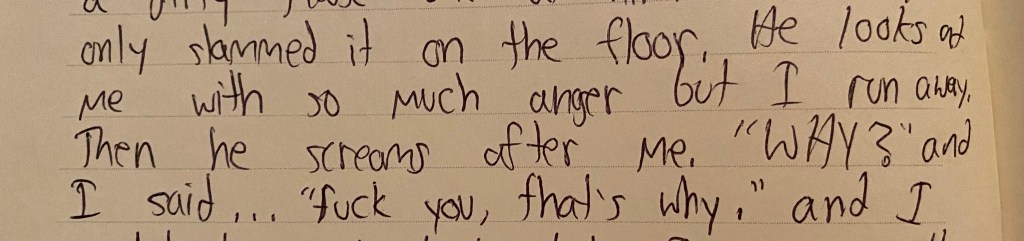 only slammed it on the floor. He looks at
me with so much anger but I run away.
Then he screams after me. "WHY?" and
I said... "fuck you, that's why." and I